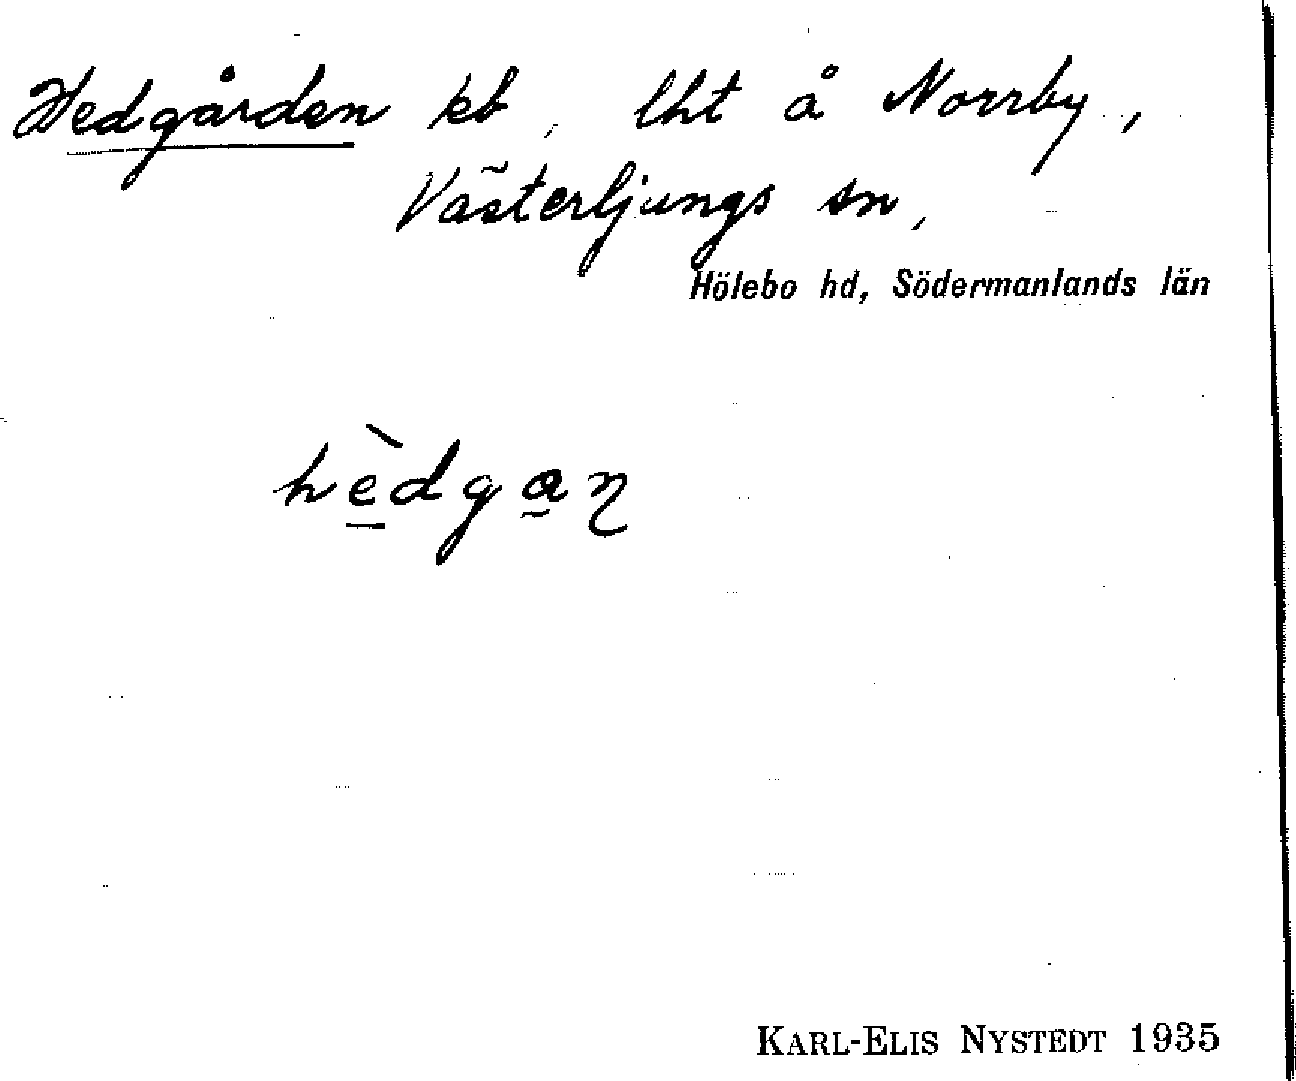 Hedgården kb, lht å Norrby,
Västerljungs sn,
Hölebo hd, Södermanlands län
hèdgaɳ
KARL-ELIS NYSTEDT 1935